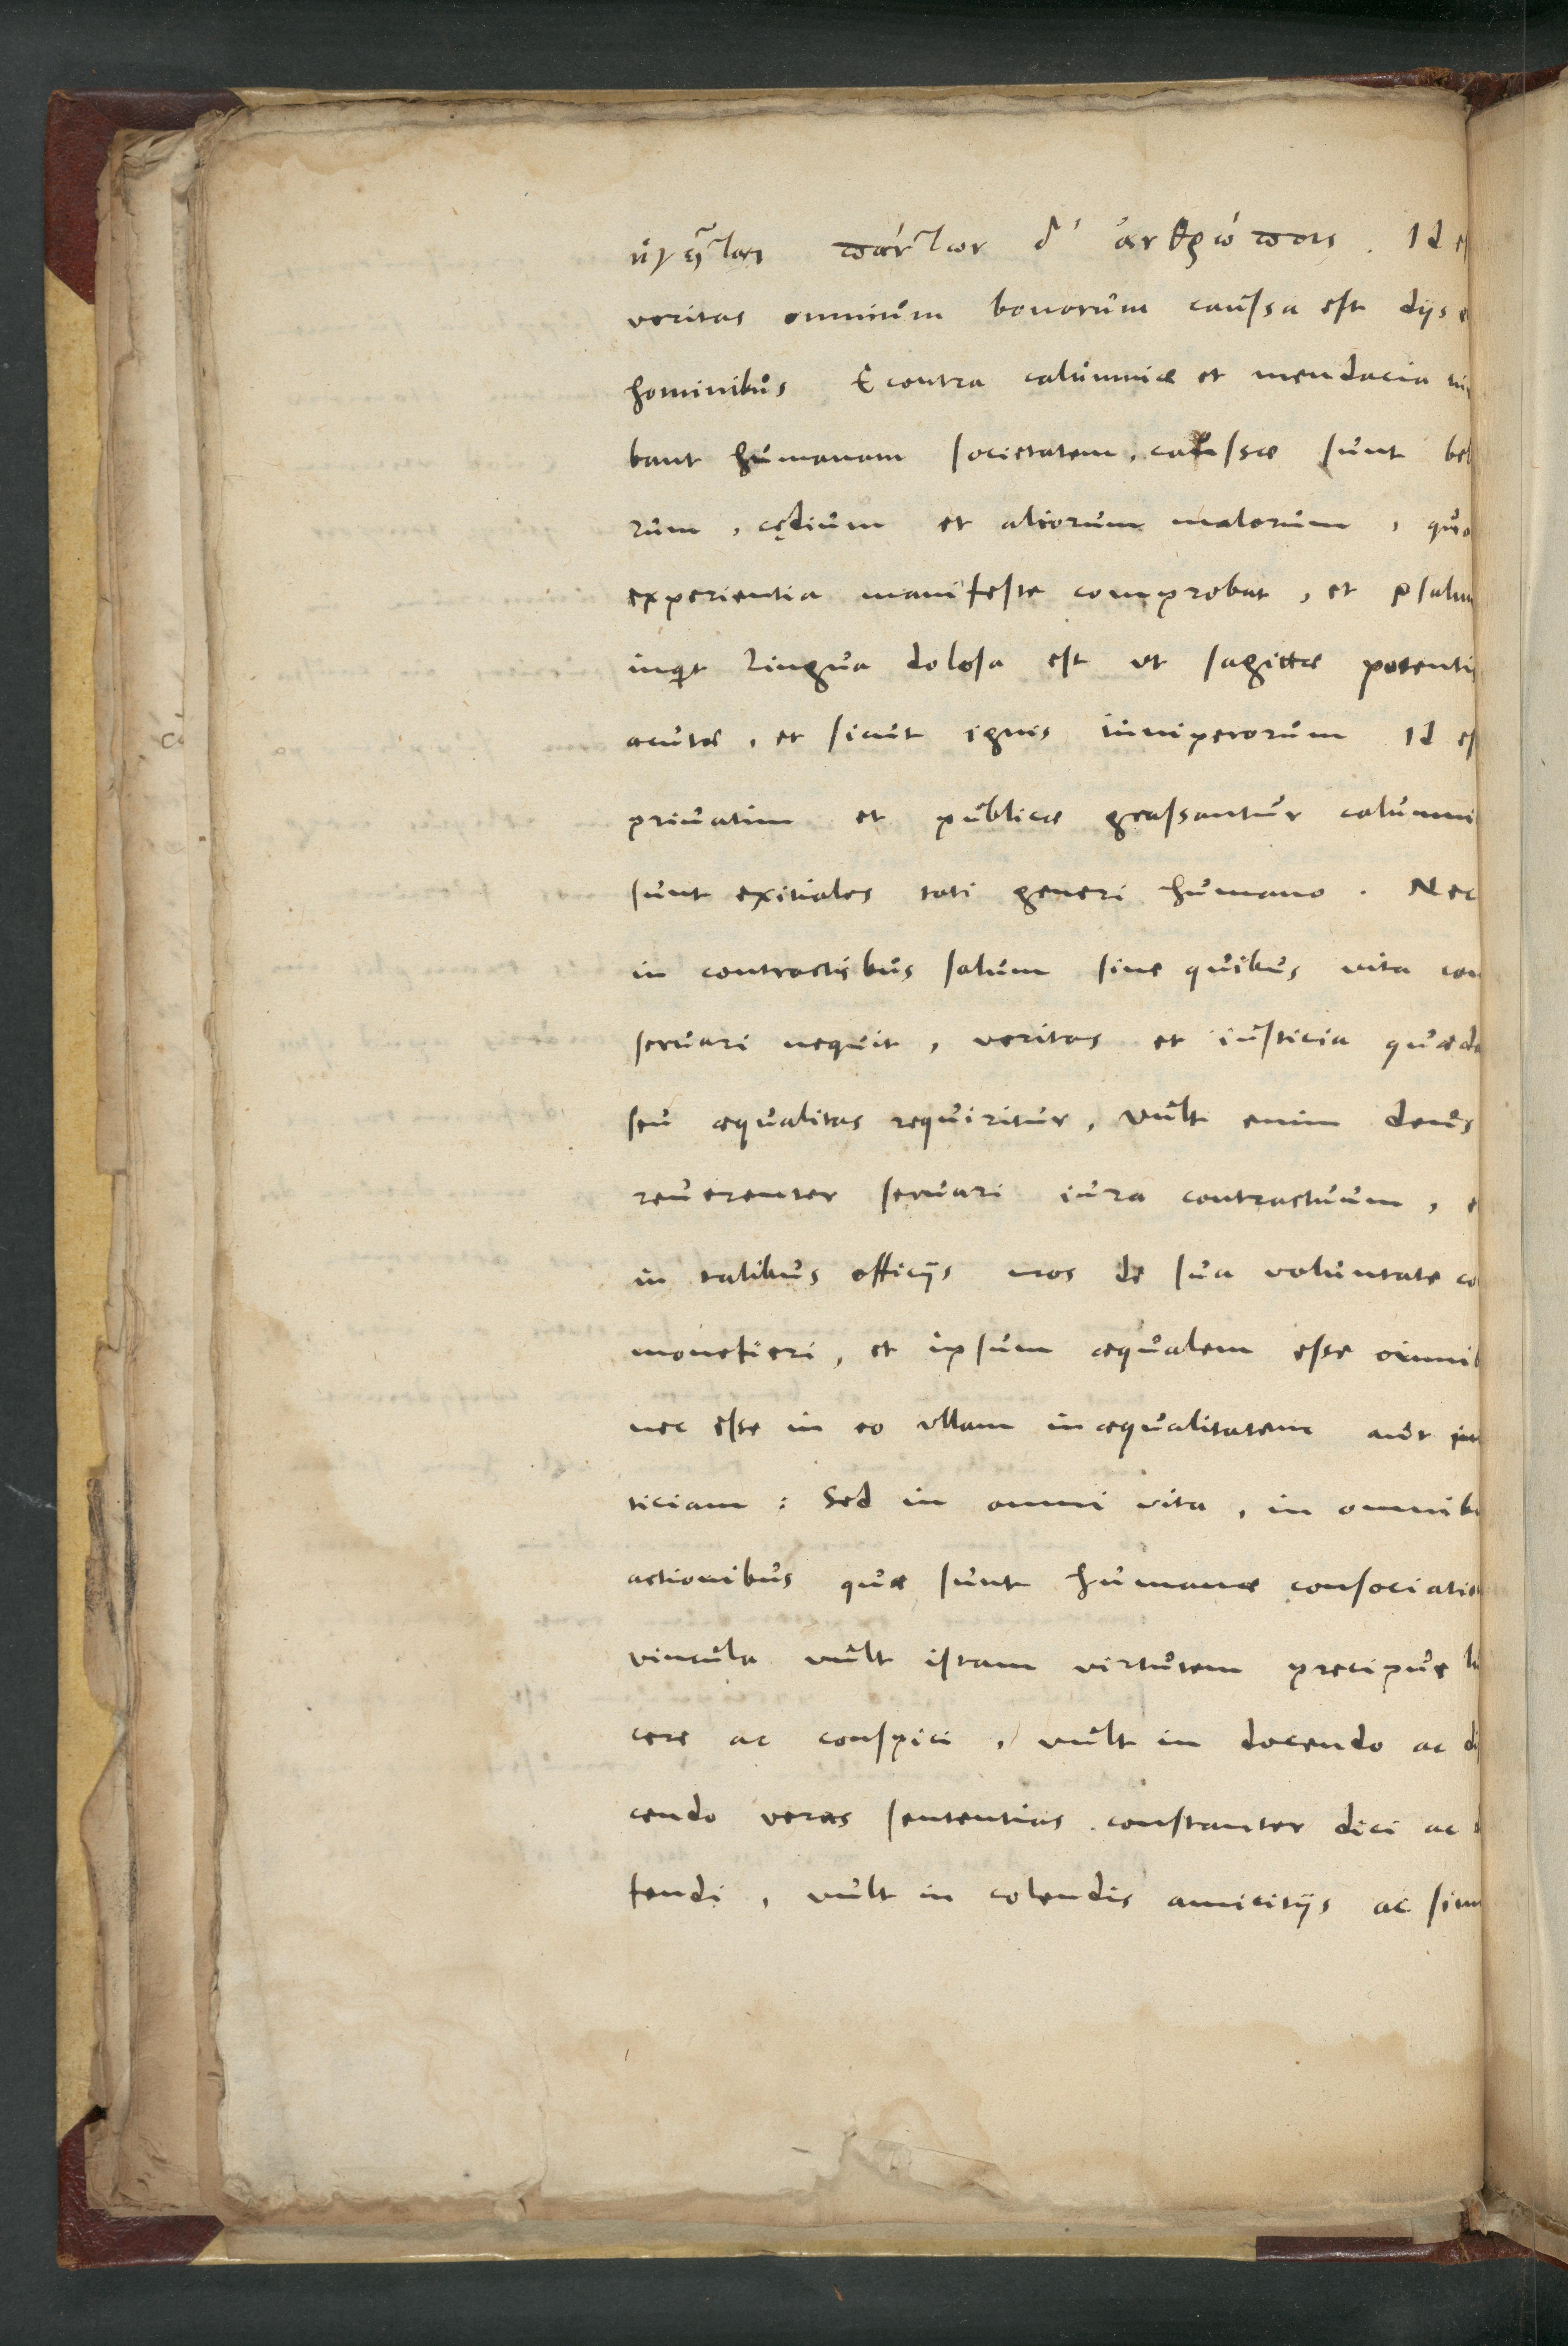 ἡγῆται πάντων δ' ἀνθρώποις. Id e
veritas omnium bonorum caussa est dijs e
hominibus E contra calumniæ et mendacia
bant humanam societatem, caussæ sunt bel
rum, cędium et aliorum malorum, quo
experientia manifeste comprobat, et psalm
inquit Lingua dolosa est ut sagittæ potentis
acutæ, et sicut ignis iuniperorum Id es
priuatim et publicæ grassantur calumni
sunt exitiales toti generi humano. Nec
in contractibus solum sine quibus vita con
seruari nequit, veritas et iusticia quæda
seu æqualitas requiritur, vult enim deus
reuerenter seruari iura contractuum, e
in talibus officijs nos de sua voluntate co
monefieri, et ipsum æqualem esse omnib
nec esse in eo ullam inæqualitatem aut in
ticiam: Sed in omni vita, in omnibu
actionibus quæ sunt humanæ consociatio
vincula vult istam virtutem precipue lu
cere ac conspici, vult in docendo ac di
cendo veras sententias constanter dici ac
fendi, vult in colendis amicitijs ac sim